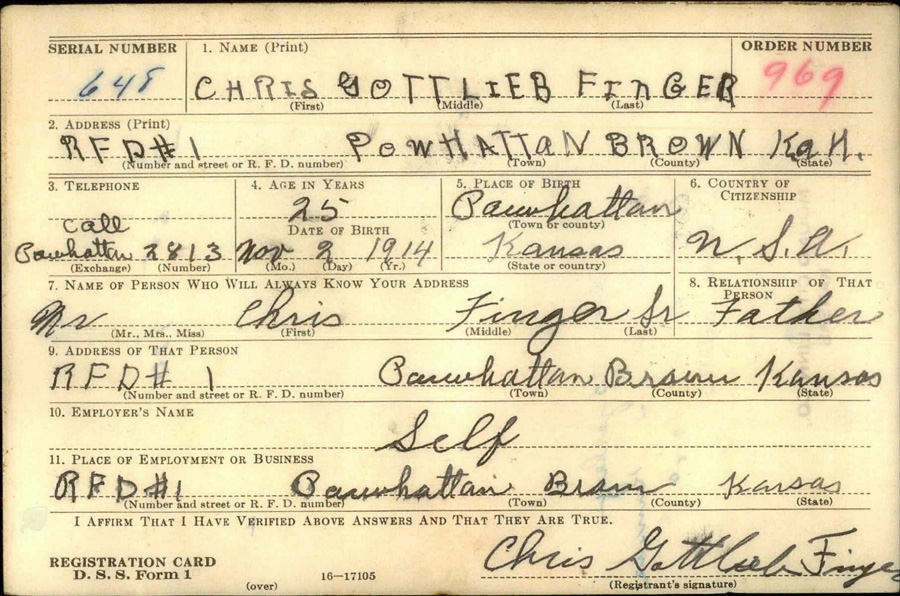 SERIAL NUMBER 1. NAME (Print) ORDER NUMBER
648 CHRIS GOTTLIEB FINGER 969
(First) (Middle) (Last)
2. ADDRESS (Print)
RFD#1 POWHATTAN BROWN KAN.
(Number and street or R. F. D. number) (Town) (County) (State)
3. TELEPHONE 4. AGE IN YEARS 5. PLACE OF BIRTH 6. COUNTRY OF CITIZENSHIP
Call 25 Powhattan
DATE OF BIRTH (Town or county)
Powhattan 2813 Nov 2 1914 Kansas U.S.A.
(Exchange) (Number) (Mo.) (Day) (Yr.) (State or country)
7. NAME OF PERSON WHO WILL ALWAYS KNOW YOUR ADDRESS 8. RELATIONSHIP OF THAT PERSON
Mr Chris Finger Sr Father
(Mr., Mrs., Miss) (First) (Middle) (Last)
9. ADDRESS OF THAT PERSON
RFD# 1 Powhattan Brown Kansas
(Number and street or R. F. D. number) (Town) (County) (State)
10. EMPLOYER'S NAME
Self
11. PLACE OF EMPLOYMENT OR BUSINESS
RFD#1 Powhattan Brown Kansas
(Number and street or R. F. D. number) (Town) (County) (State)
I AFFIRM THAT I HAVE VERIFIED ABOVE ANSWERS AND THAT THEY ARE TRUE.
REGISTRATION CARD Chris Gottlieb Finger
D. S. S. Form 1 (over) 16-17105 (Registrant's signature)